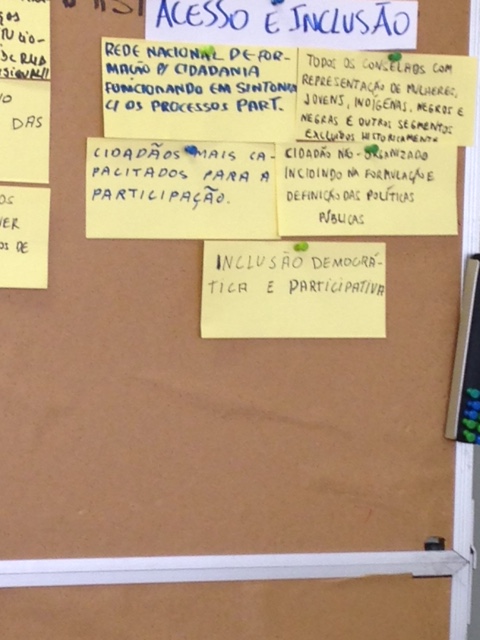 ACESSO E INCLUSÃO
REDE NACIONAL DE FOR-
MAÇÃO P/ CIDADANIA
FUNCIONANDO EM SINTONIA
C/ OS PROCESSOS PART.
TODOS OS CONSELHOS COM
REPRESENTAÇÃO DE MULHERES,
JOVENS, INDÍGENAS, NEGROS E
NEGRAS E OUTROS SEGMENTOS
EXCLUÍDOS HISTORICAMENTE
CIDADÃOS MAIS CA-
PACITADOS PARA A
PARTICIPAÇÃO.
CIDADÃO NÃO-ORGANIZADO
INCIDINDO NA FORMULAÇÃO E
DEFINIÇÃO DAS POLÍTICAS
PÚBLICAS
INCLUSÃO DEMOCRÁ-
TICA E PARTICIPATIVA
DAS
DE